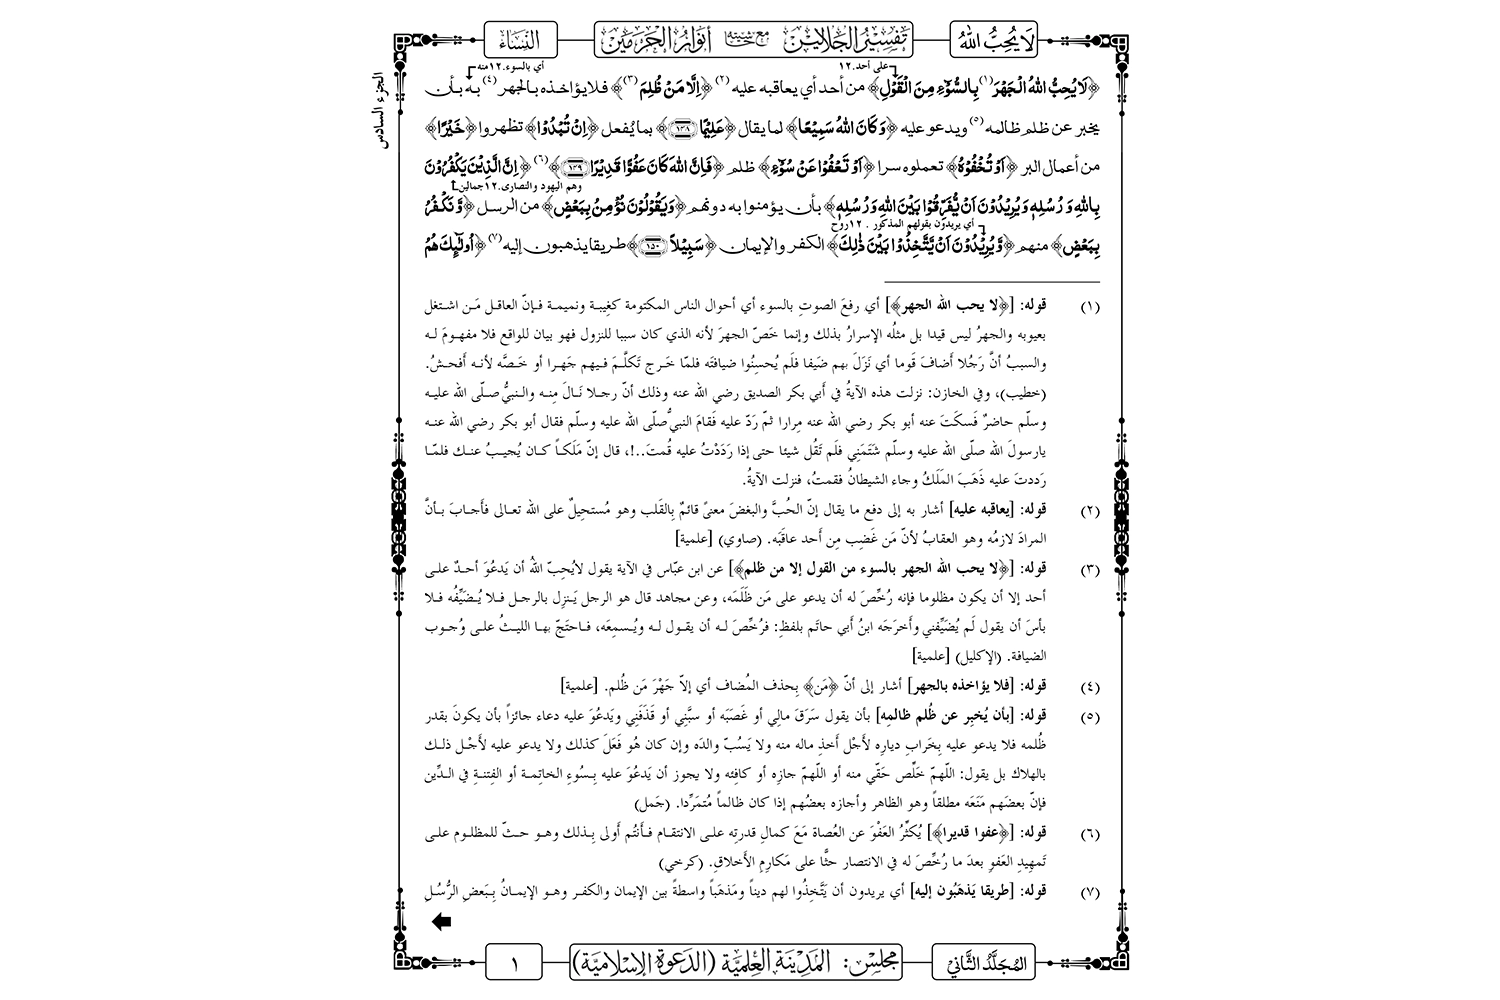 لَا يُحِبُّ اللهُ
تَفسِيْرُ الجَلَالَيْن مع حاشيته أَنوَارُ الحَرَمَيْن
النِّسَاء
الجزء السادس
على أحد.١٢
أي بالسوء.١٢منه
﴿لَا يُحِبُّ اللهُ الْجَهْرَ(١) بِالسُّوْٓءِ مِنَ الْقَوْلِ﴾ من أحد أي يعاقبه عليه (٢) ﴿اِلَّا مَنْ ظُلِمَ (٣)﴾ فلا يؤاخذه بالجهر (٤) به بأن
يخبر عن ظلم ظالمه (٥) ويدعو عليه ﴿وَكَانَ اللهُ سَمِيْعًا﴾ لما يقال ﴿عَلِيْمًا ١٤٨﴾ بما يُفعل ﴿اِنْ تُبْدُوْا﴾ تظهروا ﴿خَيْرًا﴾
من أعمال البر ﴿اَوْ تُخْفُوْهُ﴾ تعملوه سرا ﴿اَوْ تَعْفُوْا عَنْ سُوْٓءٍ﴾ ظلم ﴿فَاِنَّ اللهَ كَانَ عَفُوًّا قَدِيْرًا ١٤٩﴾ (٦) ﴿اِنَّ الَّذِيْنَ يَكْفُرُوْنَ
وهم اليهود والنصارى.١٢جمالين
بِاللهِ وَ رُسُلِهٖ وَ يُرِيْدُوْنَ اَنْ يُّفَرِّقُوْا بَيْنَ اللهِ وَ رُسُلِهٖ﴾ بأن يؤمنوا به دونهم ﴿وَيَقُوْلُوْنَ نُؤْمِنُ بِبَعْضٍ﴾ من الرسل ﴿وَّ نَكْفُرُ
أي يريدون بقولهم المذكور . ١٢روح
بِبَعْضٍ﴾ منهم ﴿وَّ يُرِيْدُوْنَ اَنْ يَّتَّخِذُوْا بَيْنَ ذٰلِكَ﴾ الكفر والإيمان ﴿سَبِيْلًا ١٥٠﴾ طريقا يذهبون إليه (٧) ﴿اُولٰٓىِٕكَ هُمُ
(١) قوله: [﴿لا يحب الله الجهر﴾] أي رفعَ الصوتِ بالسوء أي أحوال الناس المكتومة كغِيبة ونميمة فإنّ العاقل مَن اشتغل
بعيوبه والجهرُ ليس قيدا بل مثلُه الإسرارُ بذلك وإنما خَصّ الجهرَ لأنه الذي كان سببا للنزول فهو بيان للواقع فلا مفهومَ له
والسببُ أنَّ رَجُلا أضافَ قَوما أي نَزَلَ بهم ضَيفا فلَم يُحسِنُوا ضيافتَه فلمّا خَرج تَكلَّمَ فيهم جَهرا أو خَصَّه لأنه أَفحشُ.
(خطيب)، وفي الخازن: نزلت هذه الآيةُ في أَبي بكر الصديق رضي الله عنه وذلك أنّ رجلا نَالَ مِنه والنبيُّ صلّى الله عليه
وسلّم حاضرٌ فَسكَتَ عنه أبو بكر رضي الله عنه مِرارا ثمّ رَدّ عليه فَقامَ النبيُّ صلّى الله عليه وسلّم فقال أبو بكر رضي الله عنه
يارسولَ الله صلّى الله عليه وسلّم شَتَمَنِي فلَم تَقُل شيئا حتى إذا رَدَدْتُ عليه قُمتَ..!، قال إنّ مَلَكاً كان يُجيبُ عنك فلمّا
رَددتَ عليه ذَهَبَ المَلَكُ وجاء الشيطانُ فقمتُ، فنزلت الآيةُ.
(٢) قوله: [يعاقبه عليه] أشار به إلى دفع ما يقال إنّ الحُبَّ والبغضَ معنىً قائمٌ بِالقَلب وهو مُستحِيلٌ على الله تعالى فَأَجابَ بأنَّ
المرادَ لازمُه وهو العقابُ لأنّ مَن غَضِب مِن أَحد عاقَبَه. (صاوي) [علمية]
(٣) قوله: [﴿لا يحب الله الجهر بالسوء من القول إلا من ظلم﴾] عن ابن عبّاس في الآية يقول لايُحِبّ اللهُ أن يَدعُوَ أحدٌ على
أحد إلا أن يكون مظلوما فإنه رُخِّصَ له أن يدعو على مَن ظَلَمَه، وعن مجاهد قال هو الرجل يَنزِل بالرجل فلا يُضَيِّفُه فلا
بأسَ أن يقول لَم يُضَيِّفني وأَخرَجَه ابنُ أَبي حاتَم بلفظِ: فرُخِّصَ له أن يقول له ويُسمِعَه، فاحتَجّ بها الليثُ على وُجوب
الضيافة. (الإكليل) [علمية]
(٤) قوله: [فلا يؤاخذه بالجهر] أشار إلى أنّ ﴿مَن﴾ بِحذف المُضاف أي إلاّ جَهْرَ مَن ظُلم. [علمية]
(٥) قوله: [بأن يُخبِر عن ظُلم ظالمِه] بأن يقول سَرَقَ مالِي أو غَصَبَه أو سبَّنِي أو قَذَفَنِي ويَدعُوَ عليه دعاء جائزاً بأن يكونَ بقدر
ظُلمه فلا يدعو عليه بِخَرابِ ديارِه لأَجْل أَخذِ ماله منه ولا يَسُبّ والدَه وإن كان هُو فَعَلَ كذلك ولا يدعو عليه لأَجْل ذلك
بالهلاك بل يقول: اللّهمّ خَلِّص حَقّي منه أو اللّهمّ جازِه أو كافِئه ولا يجوز أن يَدعُوَ عليه بِسُوءِ الخاتِمة أو الفِتنةِ في الدِّين
فإنّ بعضَهم مَنَعَه مطلقاً وهو الظاهر وأجازه بعضُهم إذا كان ظالماً مُتمَرِّدا. (جَمل)
(٦) قوله: [﴿عفوا قديرا﴾] يُكثِّرُ العَفْوَ عن العُصاة مَعَ كمالِ قدرتِه على الانتقام فأَنتُم أَولى بِذلك وهو حثّ للمظلوم على
تَمهِيدِ العَفوِ بعدَ ما رُخِّصَ له في الانتصار حثًّا على مَكارِمِ الأَخلاقِ. (كرخي)
(٧) قوله: [طريقا يَذهَبُون إليه] أي يريدون أن يَتَّخِذُوا لهم ديناً ومَذهَباً واسطةً بين الإيمان والكفر وهو الإيمانُ بِبَعضِ الرُّسُلِ
المُجَلَّدُ الثَّانِي
مجلس: المَدِيْنَة العِلْمِيَّة (الدَعوَة الإِسْلَامِيَّة)
١